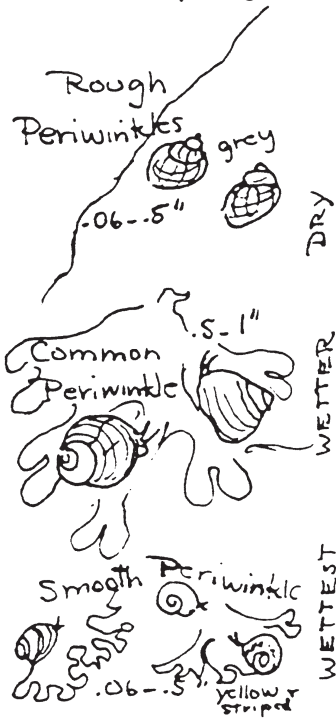 Rough
Periwinkles
grey
.06-.5"
DRY
.5-1"
Common
Periwinkle
WETTER
Smooth Periwinkle
.06-.5"
yellow +
striped
WETTEST